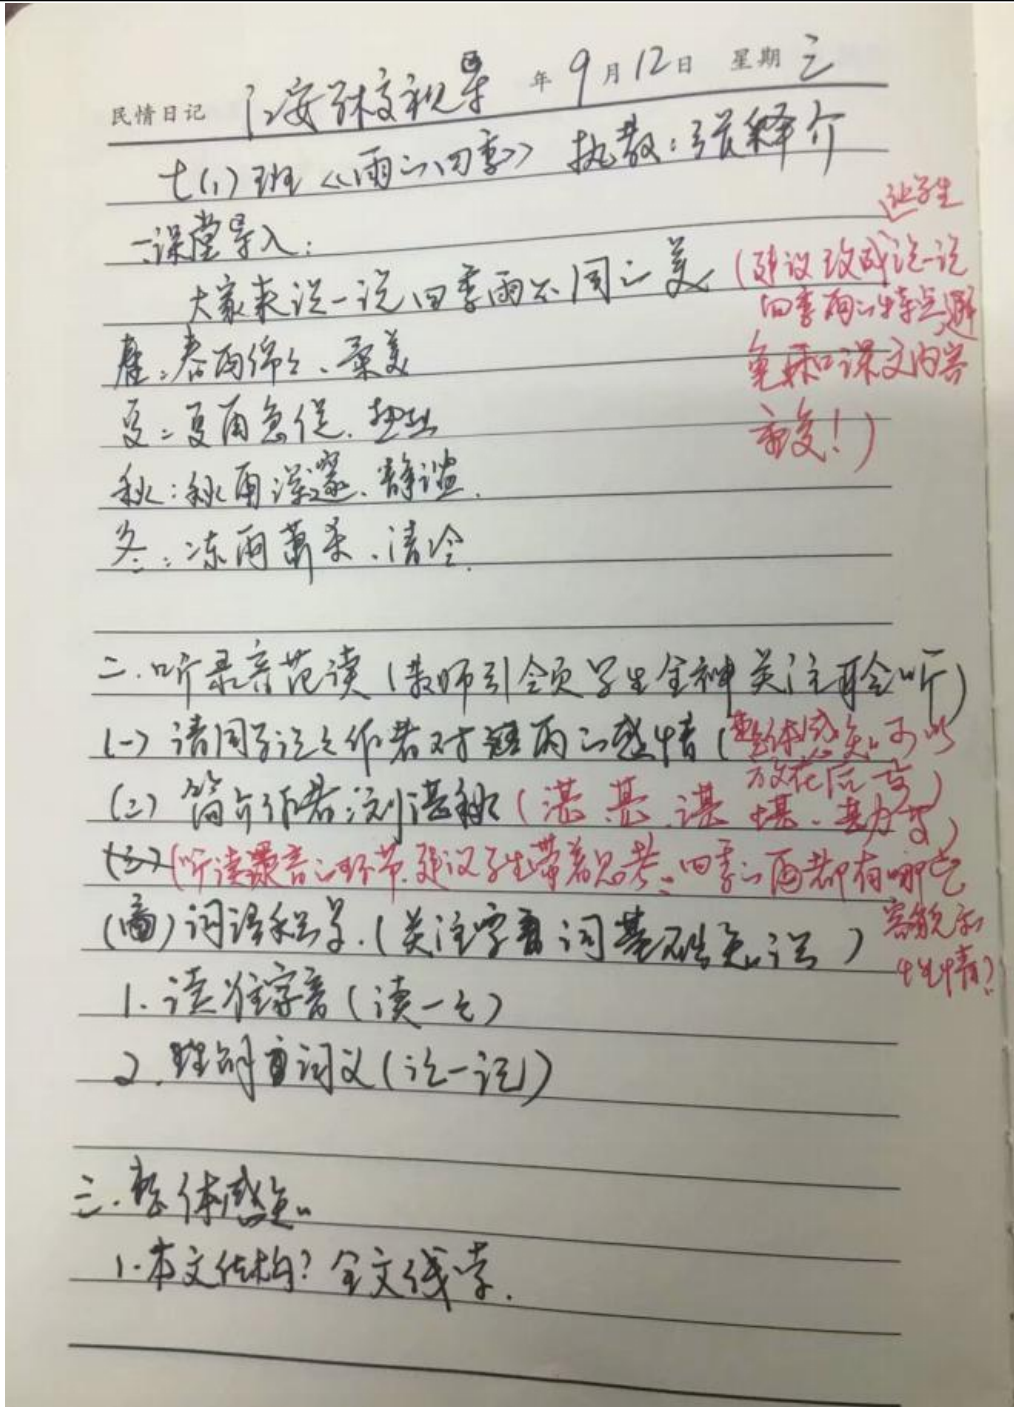 民情日记 年 9月12日 星期三
七(1)班《雨的四季》 执教:张释介
一.课堂导入:
大家来说一说四季雨不同之美
(建议改成让学生说一说
四季雨的特点避
免和课文内容
重复!)
春:春雨绵绵、柔美
夏:夏雨急促、热烈
秋:秋雨深邃、静谧.
冬:冻雨萧杀、清冷.
二.听录音范读(教师引领学生全神关注聆听)
(一)请同学说说作者对雨的感情(整体感知可以
放在后旁)
(二)简介作者:刘湛秋(湛 甚 谌 堪、勘 等)
(三)(听读录音的环节,建议学生带着思考:四季的雨都有哪些
容貌和
性情?
(三)词语积累.(关注字音词基础知识)
1.读准字音(读一读)
2.理解词义(记一记)
三.整体感知
1.本文结构?全文线索.